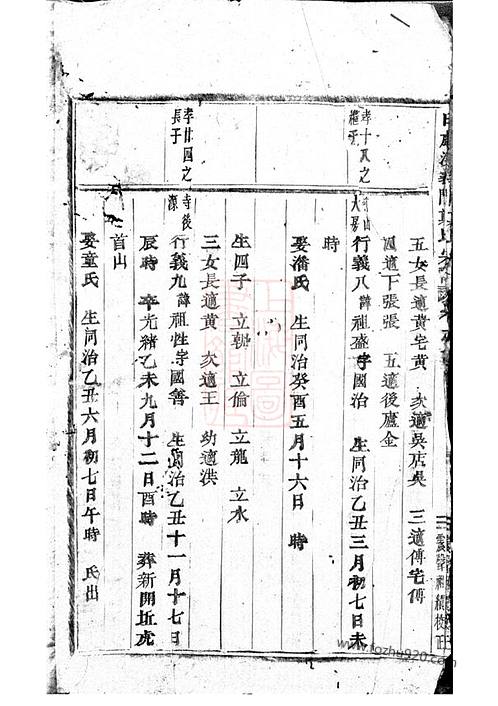 五女長適黃宅黃 次適吳店吳 三適傅宅傅
四適下張張 五適後廬金
孝十八之
繼子
行義八諱祖盛字國治 生同治乙丑三月初七日未
時
娶潘氏 生同治癸酉五月十六日 時
生四子 立朝 立倫 立龍 立水
三女長適黃 次適王 幼適洪
孝廿四之
長子
寺後
行義九諱祖性字國善 生同治乙丑十一月十七日
辰時 卒光緒乙未九月十二日酉時 葬新開坵虎
首山
娶童氏 生同治乙丑六月初七日午時 氏出
www.fozhu920.com